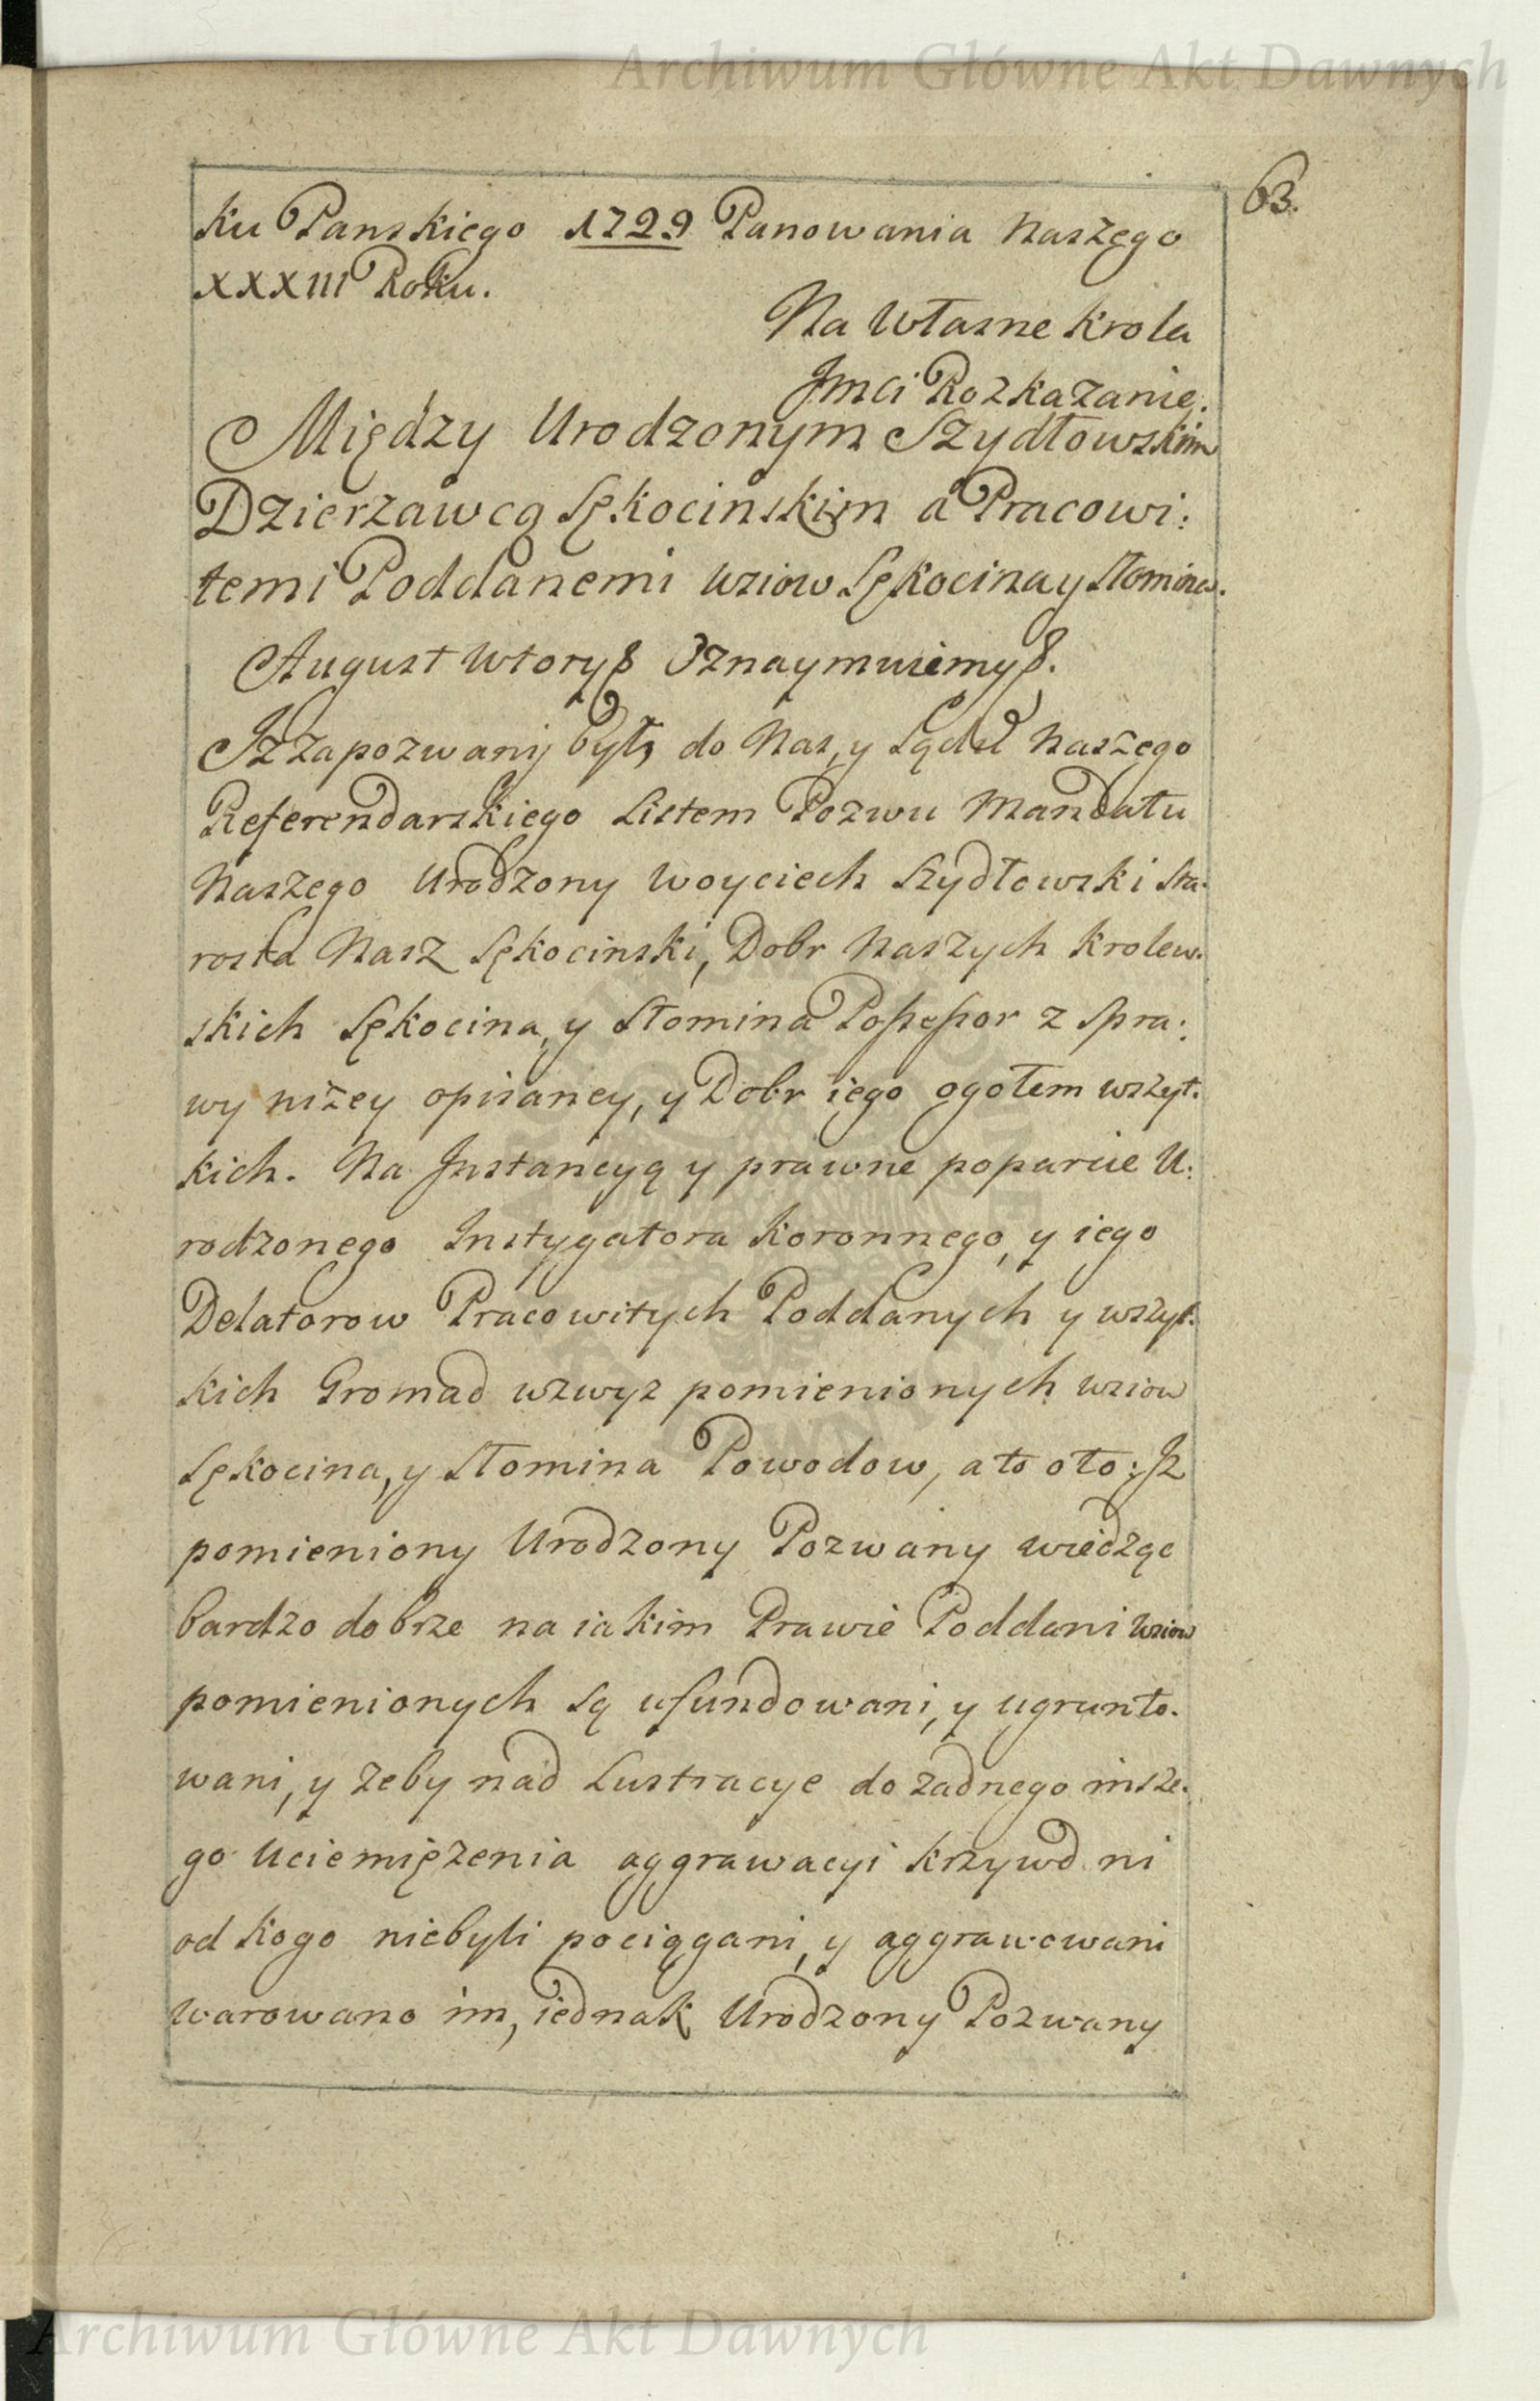 Archiwum Główne Akt Dawnych
63.
ku Panskiego 1729 Panowania Naszego
XXXIII Roku.
Na Własne Krola
Jmci Rozkazanie.
Między Urodzonym Szydłowskim
Dzierzawcą Sękocinskim a Pracowi:
temi Poddanemi wsiow Sękocina y Słomina.
August Wtory &. Oznaymuiemy &.
Jz zapozwany był do Nas, y Sądu Naszego
Referendarskiego Listem Pozwu Mandatu
Naszego Urodzony Woyciech Szydłowski Sta.
rosta Nasz Sękocinski, Dobr Naszych Krolew.
skich Sękocina, y Słomina Possessor z Spra:
wy nizey opisaney, y Dobr iego ogołem wszyt.
kich. Na Jnstancyą y prawne poparcie U:
rodzonego Jnstygatora Koronnego, y iego
Delatorow Pracowitych Poddanych y wszyt.
kich Gromad wzwyz pomienionych wsiow
Sękocina, y Słomina Powodow, a to oto: Jz
pomieniony Urodzony Pozwany wiedząc
bardzo dobrze na iakim Prawie Poddani wsiow
pomienionych są ufundowani, y ugrunto.
wani, y zeby nad Lustracye do zadnego insze.
go uciemięzenia aggrawacyi krzywd ni
od kogo niebyli pociągani, y aggrawowani
warowano im, iednak Urodzony Pozwany
Archiwum Główne Akt Dawnych